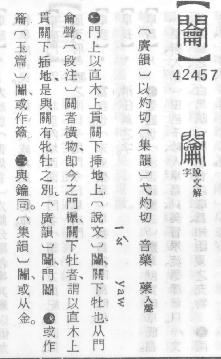 【闟】
42457
說文解字
〔廣韻〕以灼切〔集韻〕弋灼切 音藥 藥入聲
ㄧㄠˋ yaw
㊀門上以直木上貫關下揷地上〔說文〕關下牡也从門
龠聲〔段注〕關者橫物卽今之門櫎關下牡者謂以直木上
貫關下揷地是與關有牝牡之別〔廣韻〕關門䦆㊁或作
籥〔玉篇〕䦆或作籥㊂與鑰同〔集韻〕䦆或从金